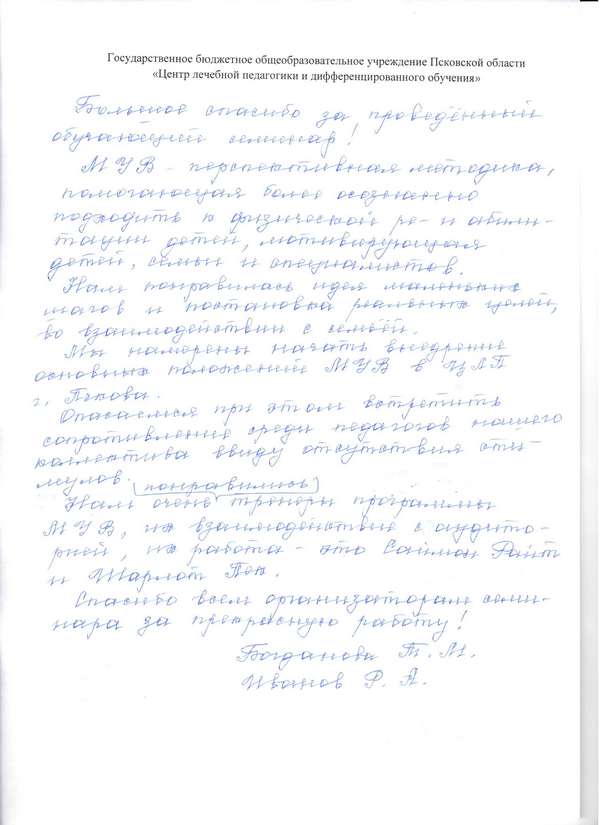 Государственное бюджетное общеобразовательное учреждение Псковской области
«Центр лечебной педагогики и дифференцированного обучения»
Большое спасибо за проведённый
обучающий семинар!
МУВ - перспективная методика,
помогающая более осознанно
подходить к физической ре- и абили-
тации детей, мотивирующая
детей, семьи и специалистов.
Нам понравилась идея маленьких
шагов и постановка реальных целей,
во взаимодействии с семьёй.
Мы намерены начать внедрение
основных положений МУВ в ЦЛП
г. Пскова.
Опасаемся при этом встретить
сопротивление среди педагогов нашего
коллектива ввиду отсутствия сти-
мулов.
понравились
Нам очень тренеры программы
МУВ, их взаимодействие с аудито-
рией, их работа - это Саймон Райт
и Шарлот Пек.
Спасибо всем организаторам семи-
нара за прекрасную работу!
Богданова Т. М.
Иванов Р. А.